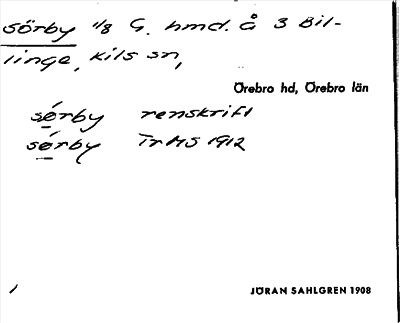 Sörby 1/8 G. hmd. å 3 Bil-
linge, Kils sn,
Örebro hd, Örebro län
sørby renskrift
sørby TrMS 1912
JÖRAN SAHLGREN 1908